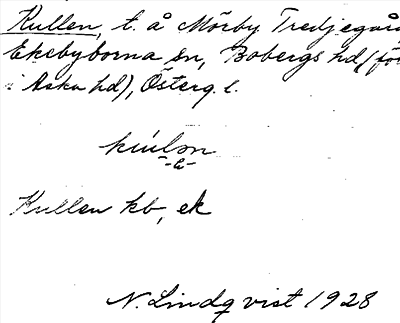 Kullen, t. å Mörby Tredjegår
Ekebyborna sn, Bobergs hd (för
i Aska hd), Österg. l.
-e-
Kullen kb, ek
N. Lindqvist 1928